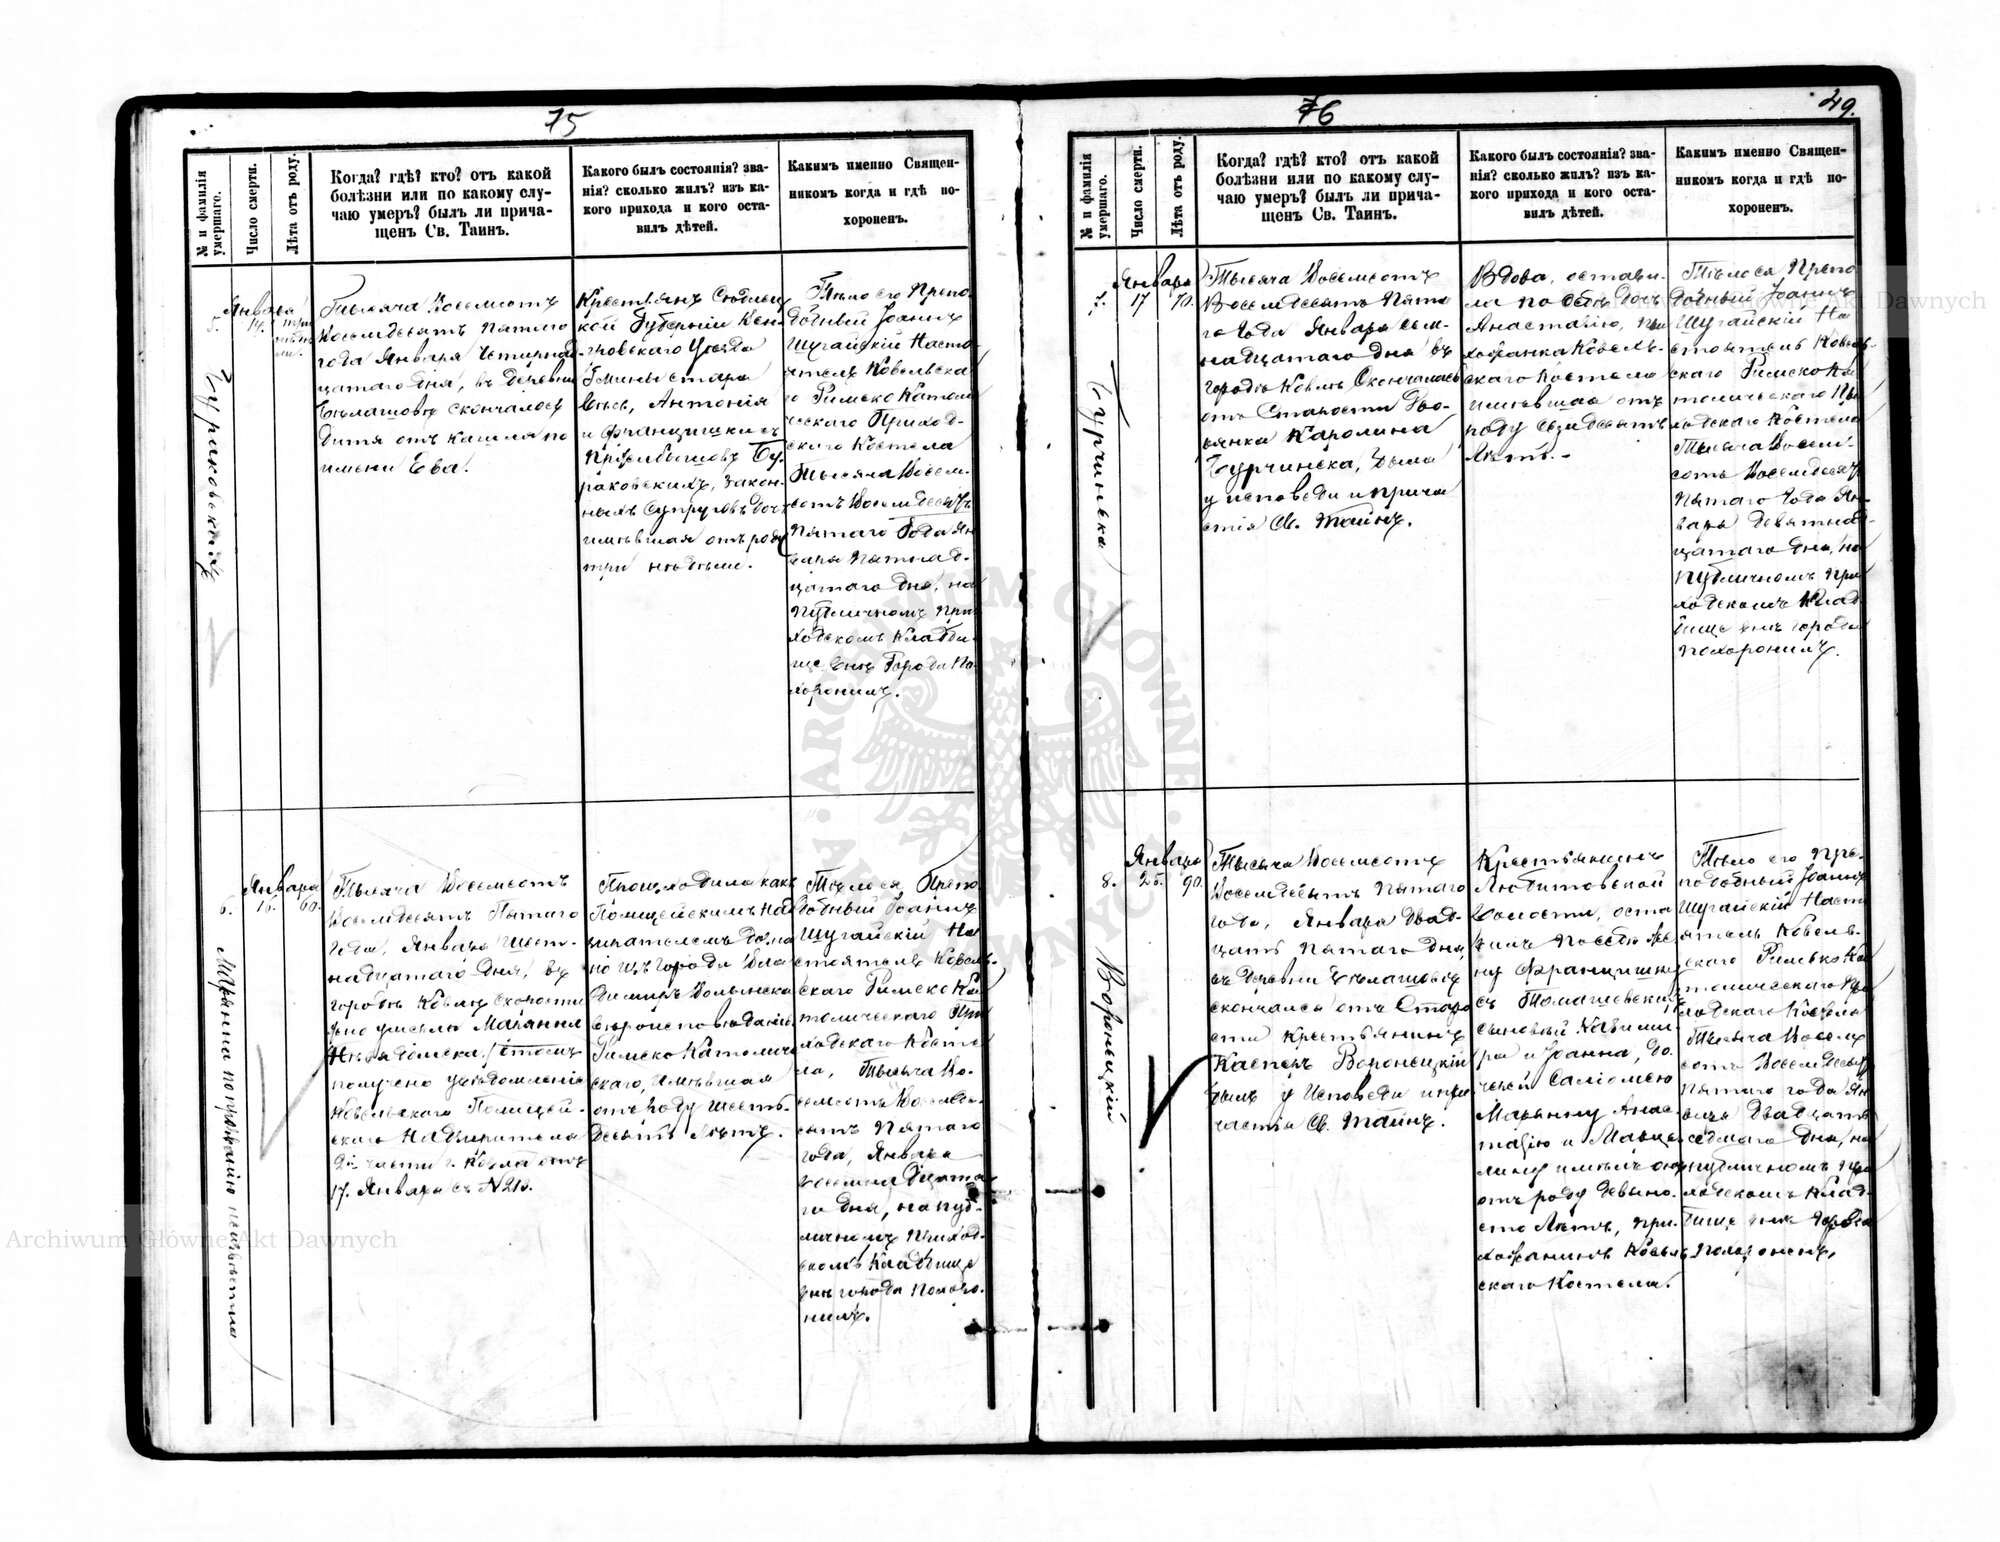 75
№ и фамилія умершаго.
Число смерти.
Лѣта отъ роду.
Когда? гдѣ? кто? отъ какой
болѣзни или по какому слу-
чаю умеръ? былъ ли прича-
щенъ Св. Таинъ.
Какого былъ состоянія? зва-
нія? сколько жилъ? изъ ка-
кого прихода и кого оста-
вилъ дѣтей.
Какимъ именно Священ-
никомъ когда и гдѣ по-
хороненъ.
5.
Января
14.
три
недѣ
ли.
Тысяча Восемсотъ
Восемдесятъ пятаго
года Января Четырнад
цатаго дня, въ деревни
скончалось
Дитя отъ кашля по
имени Ева.
Крестьянъ Сѣдлец
кой Губерніи Вен-
гровскаго Уѣзда
Гмины Стара
Весь, Антонія
и Францишки съ
Бу-
раковскихъ, закон-
ныхъ Супруговъ дочь
имѣвшая отъ роду
три недѣли.
Тѣло его Препо-
добный Іоаннъ
Шугайскій Насто-
ятель Ковельска
го Римско Католи
ческаго Приход-
скаго Костела
Тысяча Восем-
сотъ Восемдесятъ
Пятаго Года Ян
варя Пятнад-
цатаго дня, на
публичномъ при
ходскомъ кладби-
ще внѣ Города по-
хоронилъ.
6.
Января
16.
60.
Марьянна по прозванію неизвѣстна
Тысяча Восемсотъ
Восемдесятъ Пятаго
Года, Января Шест-
надцатаго дня, въ
городѣ Ковлѣ скоропости
жно умерла Маріанна
/ о томъ
получено увѣдомленіе
Ковельскаго Полицей-
скаго Надзирателя
2й части г. Ковля отъ
17. Января съ N 218.
Происходила какъ
Полицейскимъ над
зирателемъ дозна
но изъ города Вла
димиръ Волынска
Вѣроисповѣданія
Римско Католиче
скаго, имѣвшая
отъ роду шесть-
десятъ лѣтъ.
Тѣло ея, Препо-
добный Іоаннъ
Шугайскій На
стоятель Ковель-
скаго Римско Ка
толическаго При
ходскаго Косте
ла, Тысяча Во-
семсотъ Восемде-
сятъ Пятаго
года, Января
восемнадцата
го дня, на пуб-
личномъ приход-
скомъ кладбище
внѣ города похоро-
нилъ.
76
49.
№ и фамилія умершаго.
Число смерти.
Лѣта отъ роду.
Когда? гдѣ? кто? отъ какой
болѣзни или по какому слу-
чаю умеръ? былъ ли прича-
щенъ Св. Таинъ.
Какого былъ состоянія? зва-
нія? сколько жилъ? изъ ка-
кого прихода и кого оста-
вилъ дѣтей.
Какимъ именно Священ-
никомъ когда и гдѣ по-
хороненъ.
7.
Января
17
70.
Бурчинска
Тысяча Восемсотъ
Восемдесятъ Пята
го Года Января сем-
надцатаго дня въ
городѣ Ковлѣ Скончалась
отъ Старости Дво-
рянка Каролина
Бурчинска, была
у исповѣди и прича
стія Св. Таинъ.
Вдова, остави-
ла по себѣ дочь
Анастазію, при
хожанка Ковель-
скаго Костела
имѣвшая отъ
роду семдесятъ
Лѣтъ.-
Тѣло ея, Препо
добный Іоаннъ
Шугайскій На
стоятель Ковель-
скаго Римско Ка
толическаго При
ходскаго Костела
Тысяча Восем-
сотъ Восемдесятъ
Пятаго Года Ян-
варя девятнад-
цатаго дня, на
публичномъ при
ходскомъ Клад
бище внѣ города
похоронилъ.
8.
Января
25.
90.
Воронецкій
Тысяча Восемсотъ
Восемдесятъ пятаго
года, Января двад-
цать пятаго дня,
въ деревни
скончался отъ Старо
сти крестьянинъ
Касперъ Воронецкій
былъ у Исповѣди и при
частія Св. Таинъ.
Крестьянинъ
Любитовской
Волости, оста
вилъ по себѣ же
ну Францишку
съ Томашевскихъ
сыновей Казими-
ра и Іоанна, до-
черей Саломею
Марьянну Анас-
тазію и Маце-
лину имѣлъ онъ
отъ роду девяно-
сто Лѣтъ, при-
хожанинъ Ковель
скаго Костела.
Тѣло его Пре-
подобный Іоаннъ
Шугайскій Насто
ятель Ковель-
скаго Римско Ка
толическаго При
ходскаго Костела
Тысяча Восем
сотъ Восемдесятъ
Пятаго года Ян
варя двадцать
седмаго дня, на
публичномъ при
ходскомъ Клад-
бище внѣ города
похороненъ,
Archiwum Główne Akt Dawnych
Archiwum Główne Akt Dawnych
ARCHIWUM GŁÓWNE AKT DAWNYCH